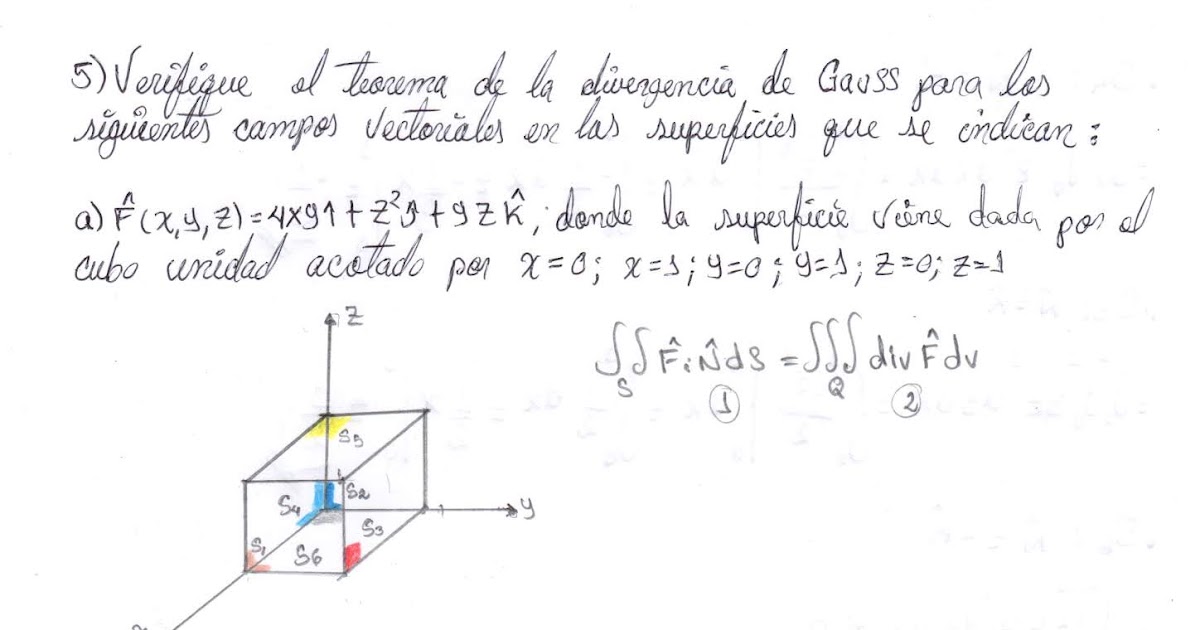 5) Verifique el teorema de la divergencia de Gauss para los
siguientes campos vectoriales en las superficies que se indican:
a) F̂(x,y,z)=4xyî+z²ĵ+yzk̂; donde la superficie viene dada por el
cubo unidad acotado por x=0; x=1; y=0; y=1; z=0; z=1
z
∬ F̂·N̂ds = ∭ div F̂ dv
S Q
1 2
S5
1
S4 S2
y
1
S3
S1 S6